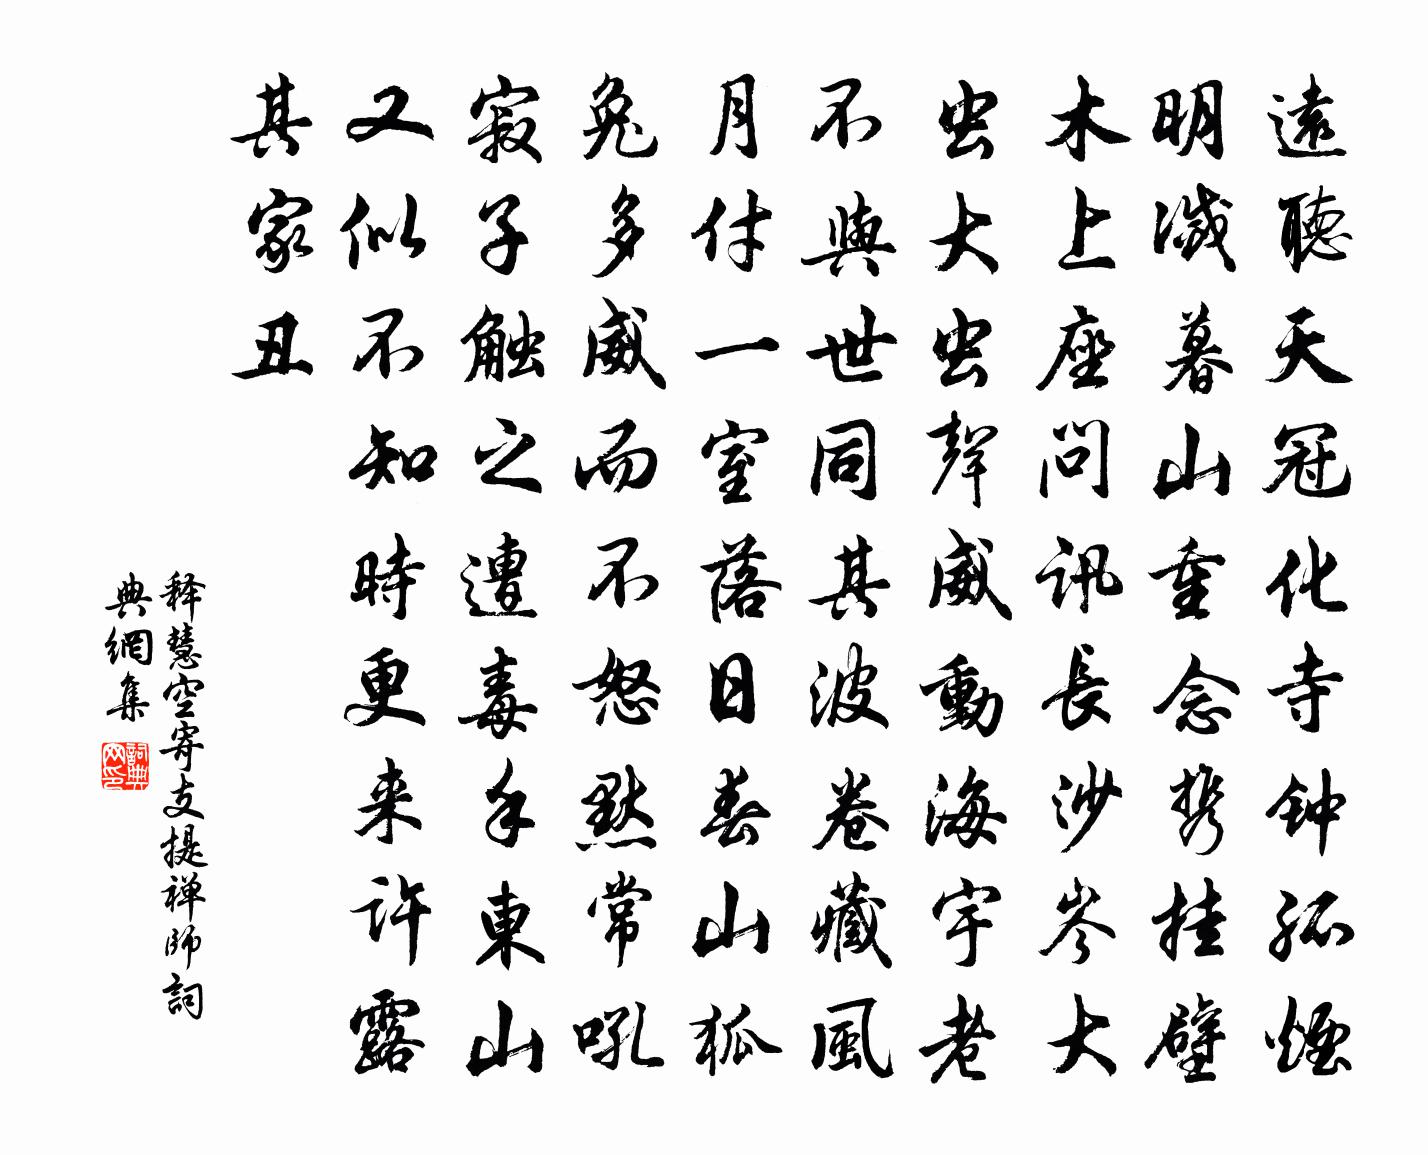 遠聽天冠化寺钟孤煙
明滅暮山重念携挂壁
木上座問訊長沙岑大
虫大虫聲威動海宇老
不與世同其波卷藏風
月付一室落日春山狐
兔多威而不怒默常吼
寂子触之遭毒手東山
又似不知時更来許露
其家丑
释慧空寄支提禅師詞
典網集
詞典
网印